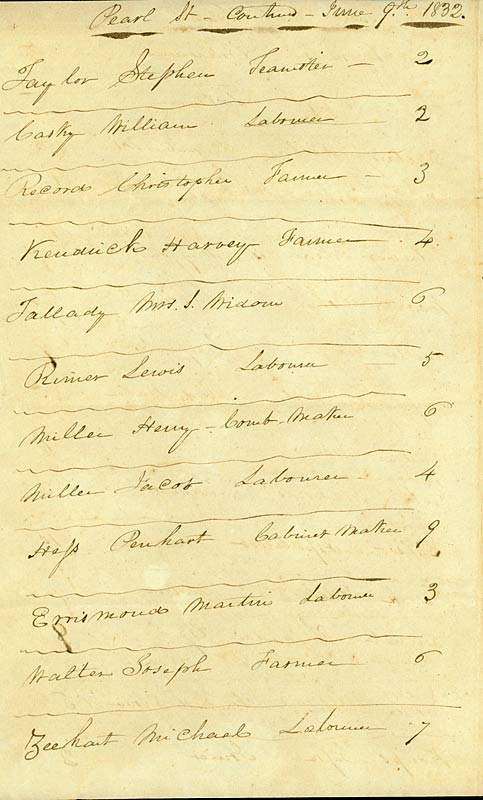 Pearl St - Contind - June 9th 1832.
Taylor Stephen Teamster - 2
Casky William Labourer 2
Record Christopher Farmer - 3
Kendrick Harvey Farmer 4.
Tallady Mrs. J. Widow 6
Rimer Lewis Labourer 5
Miller Henry - Comb Maker 6
Miller Jacob Labourer 4
Hess Penhart Cabinet Maker 9
Errismond Martin Labourer 3
Walter Joseph Farmer 6
Zeehart Michael Labourer 7